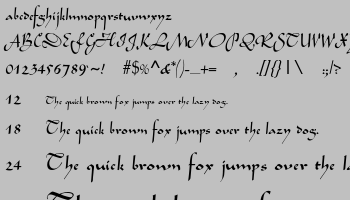 abcdefghijklmnopqrstuvwxyz
ABCDEFGHIJKLMNOPQRSTUVWX
0123456789`~! #$%^&*()-_+= , .[]{} | \ :;/>
12 The quick brown fox jumps over the lazy dog.
18 The quick brown fox jumps over the lazy dog.
24 The quick brown fox jumps over the l